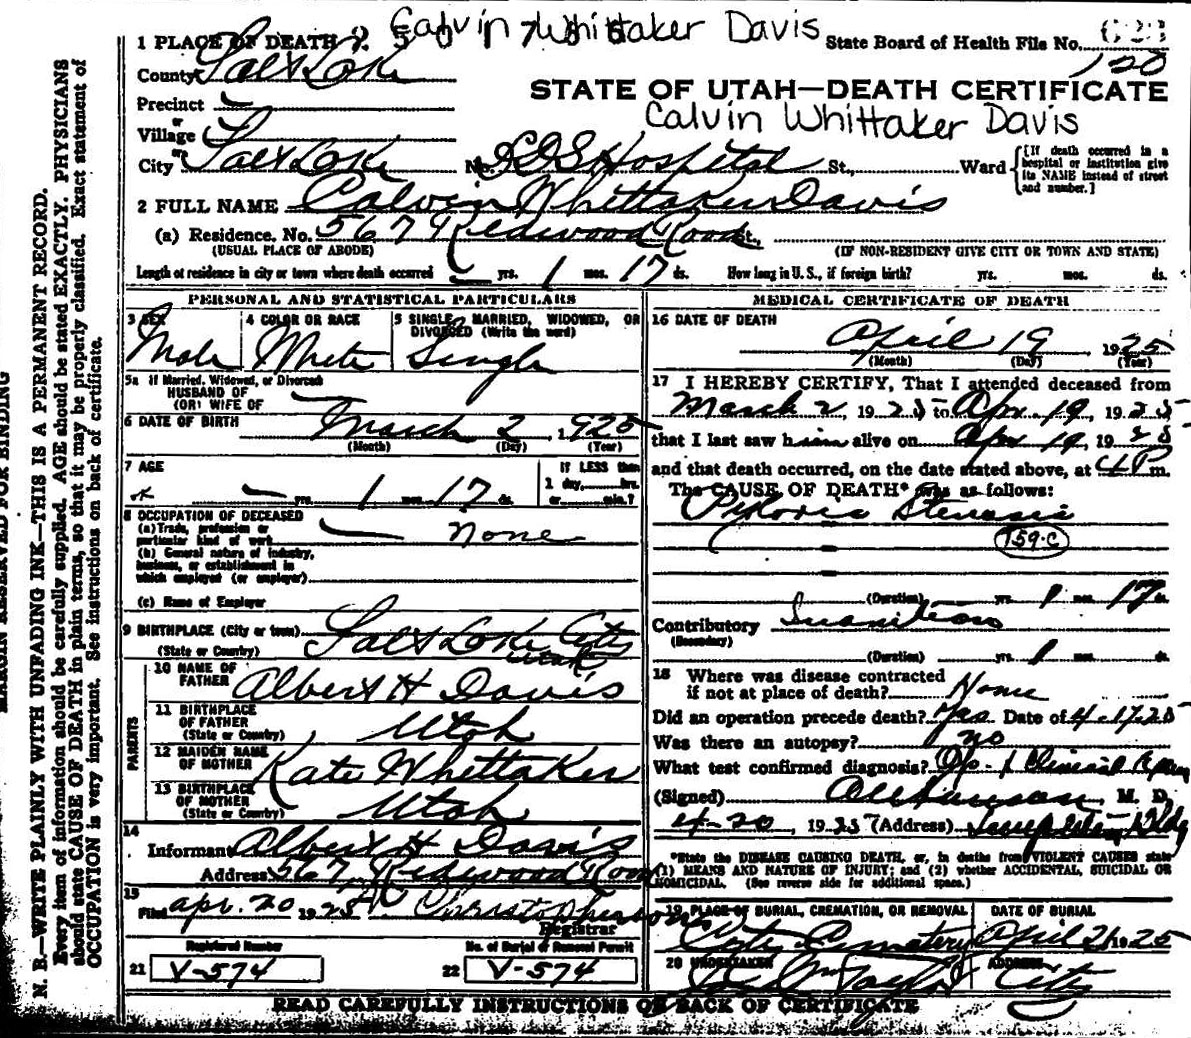 Calvin Whittaker Davis
1 PLACE OF DEATH
State Board of Health File No.
120
County Salt Lake
STATE OF UTAH—DEATH CERTIFICATE
Precinct
Calvin Whittaker Davis
or
Village
or
City Salt Lake No. LDS Hospital St., Ward
{If death occurred in a hospital or institution give its NAME instead of street and number.}
2 FULL NAME Calvin Whittaker Davis
(a) Residence. No. 567 Redwood Road St.
(USUAL PLACE OF ABODE) (IF NON-RESIDENT GIVE CITY OR TOWN AND STATE)
Length of residence in city or town where death occurred — yrs. 1 mos. 17 ds. How long in U. S., if foreign birth? yrs. mos. ds.
PERSONAL AND STATISTICAL PARTICULARS
3 SEX 4 COLOR OR RACE 5 SINGLE, MARRIED, WIDOWED, OR DIVORCED (Write the word)
Male White Single
5a If Married, Widowed, or Divorced
HUSBAND OF
(OR) WIFE OF
6 DATE OF BIRTH March 2, 1925
(Month) (Day) (Year)
7 AGE — yrs. 1 mos. 17 ds.
IF LESS than
1 day, hrs.
or min.?
8 OCCUPATION OF DECEASED
(a) Trade, profession or
particular kind of work — None
(b) General nature of industry,
business, or establishment in
which employed (or employer)
(c) Name of Employer
9 BIRTHPLACE (City or town) Salt Lake City
(State or Country) Utah
PARENTS
10 NAME OF FATHER Albert H Davis
11 BIRTHPLACE OF FATHER Utah
(State or Country)
12 MAIDEN NAME OF MOTHER Kate Whittaker
13 BIRTHPLACE OF MOTHER Utah
(State or Country)
14
Informant Albert H Davis
Address 567 Redwood Road
15
Filed Apr. 20 1925 Christopherson
Registrar
Registered Number No. of Burial or Removal Permit
21 V-574 22 V-574
MEDICAL CERTIFICATE OF DEATH
16 DATE OF DEATH
April 19, 1925
(Month) (Day) (Year)
17 I HEREBY CERTIFY, That I attended deceased from
March 2, 1925 to Apr 19, 1925
that I last saw him alive on Apr 19, 1925
and that death occurred, on the date stated above, at 4 P m.
The CAUSE OF DEATH* was as follows:
Pyloric Stenosis
159-C
(Duration) yrs. 1 mos. 17 ds.
Contributory Inanition
(Secondary)
(Duration) yrs. 1 mos. ds.
18 Where was disease contracted
if not at place of death? Home
Did an operation precede death? Yes Date of 4-17-25
Was there an autopsy? no
What test confirmed diagnosis? Op. & Clinical
(Signed) M. D.
4-20, 1925 (Address) Bldg
*State the DISEASE CAUSING DEATH, or, in deaths from VIOLENT CAUSES state
(1) MEANS AND NATURE OF INJURY; and (2) whether ACCIDENTAL, SUICIDAL OR
HOMICIDAL. (See reverse side for additional space.)
19 PLACE OF BURIAL, CREMATION, OR REMOVAL DATE OF BURIAL
City Cemetery April 21 1925
20 UNDERTAKER ADDRESS
Taylor City
READ CAREFULLY INSTRUCTIONS ON BACK OF CERTIFICATE
MARGIN RESERVED FOR BINDING
N. B.—WRITE PLAINLY WITH UNFADING INK—THIS IS A PERMANENT RECORD.
Every item of information should be carefully supplied. AGE should be stated EXACTLY. PHYSICIANS
should state CAUSE OF DEATH in plain terms, so that it may be properly classified. Exact statement of
OCCUPATION is very important. See instructions on back of certificate.